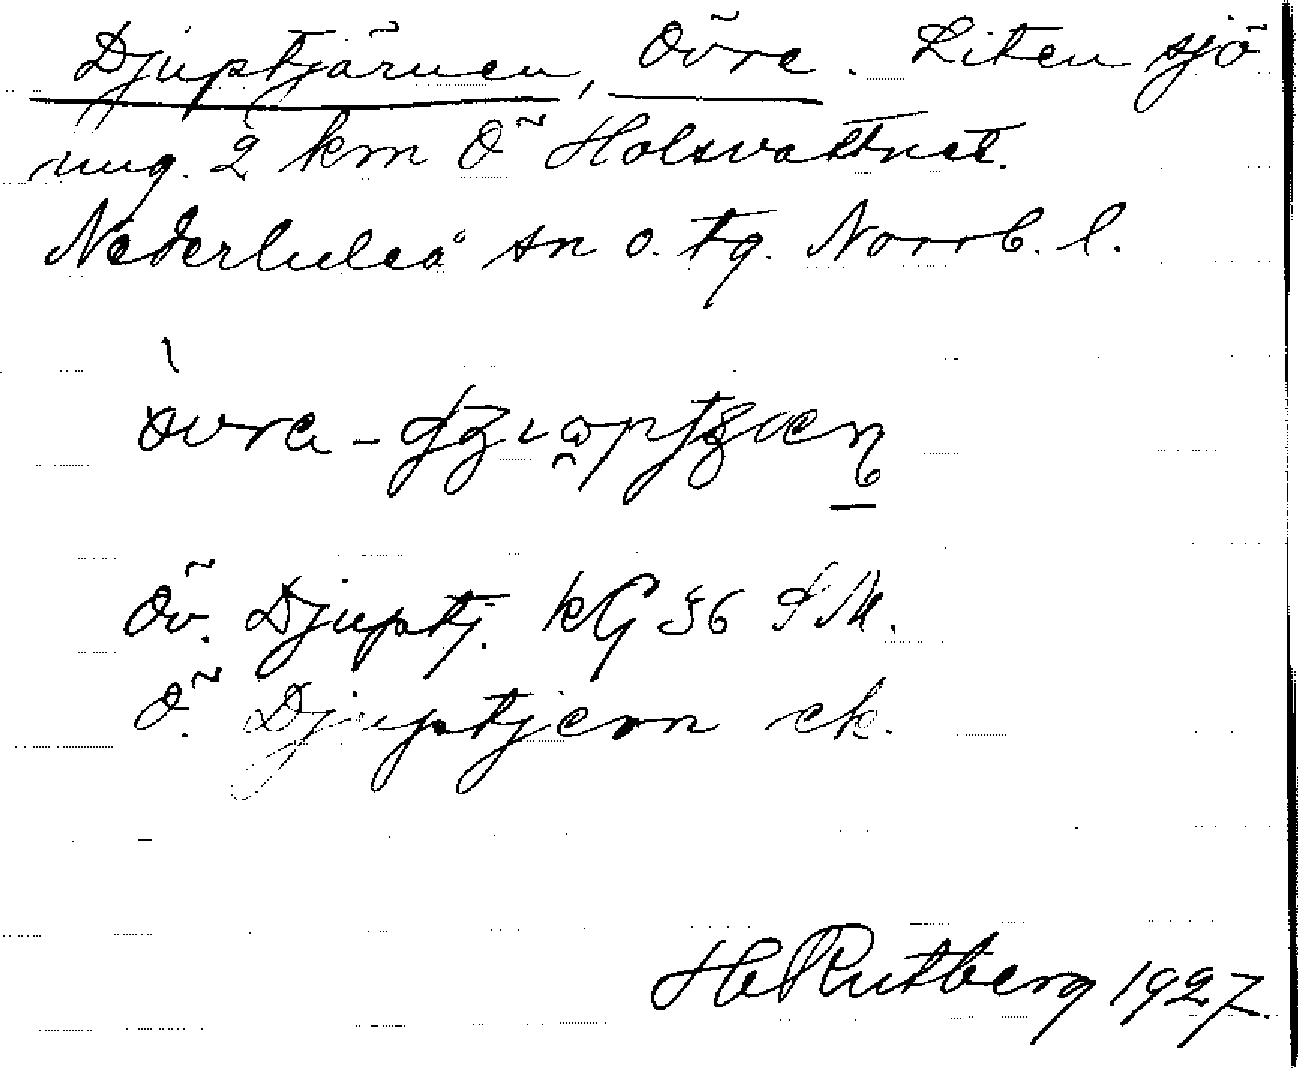 Djuptjärnen, Övre. Liten sjö
ung. 2 km Ö Holsvattnet.
Nederluleå sn o. tg. Norrb. l.
Öv. Djuptj. kG 36 SM.
Ö. Djuptjern ek.
H Rutberg 1927.